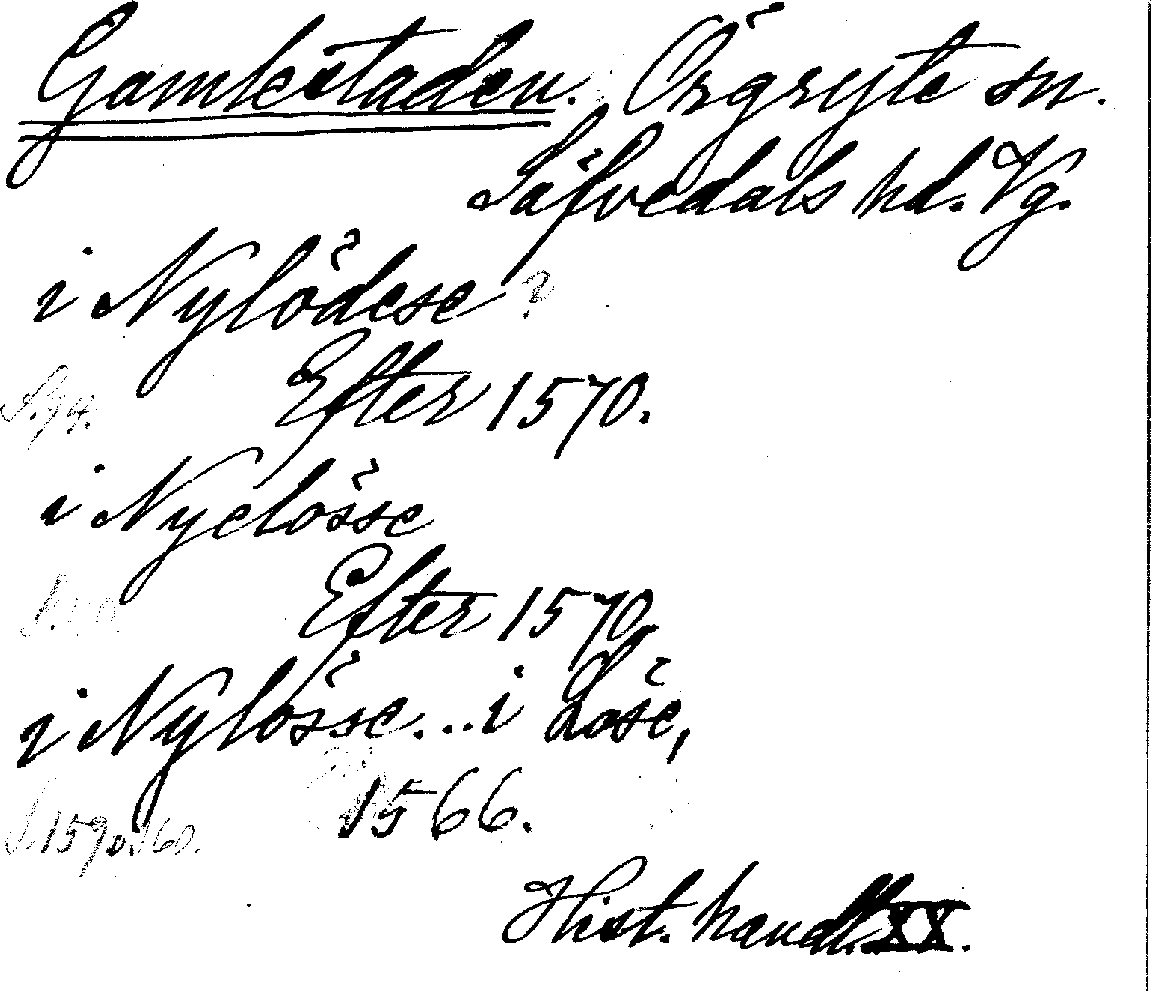 Gamlestaden. Örgryte sn.
Säfvedals hd. Vg.
i Nylödese?
Efter 1570.
S. 94.
i Nyelösse
Efter 1570.
i Nylösse... i Löse,
1566.
S. 159,
Hist. handl. XX.